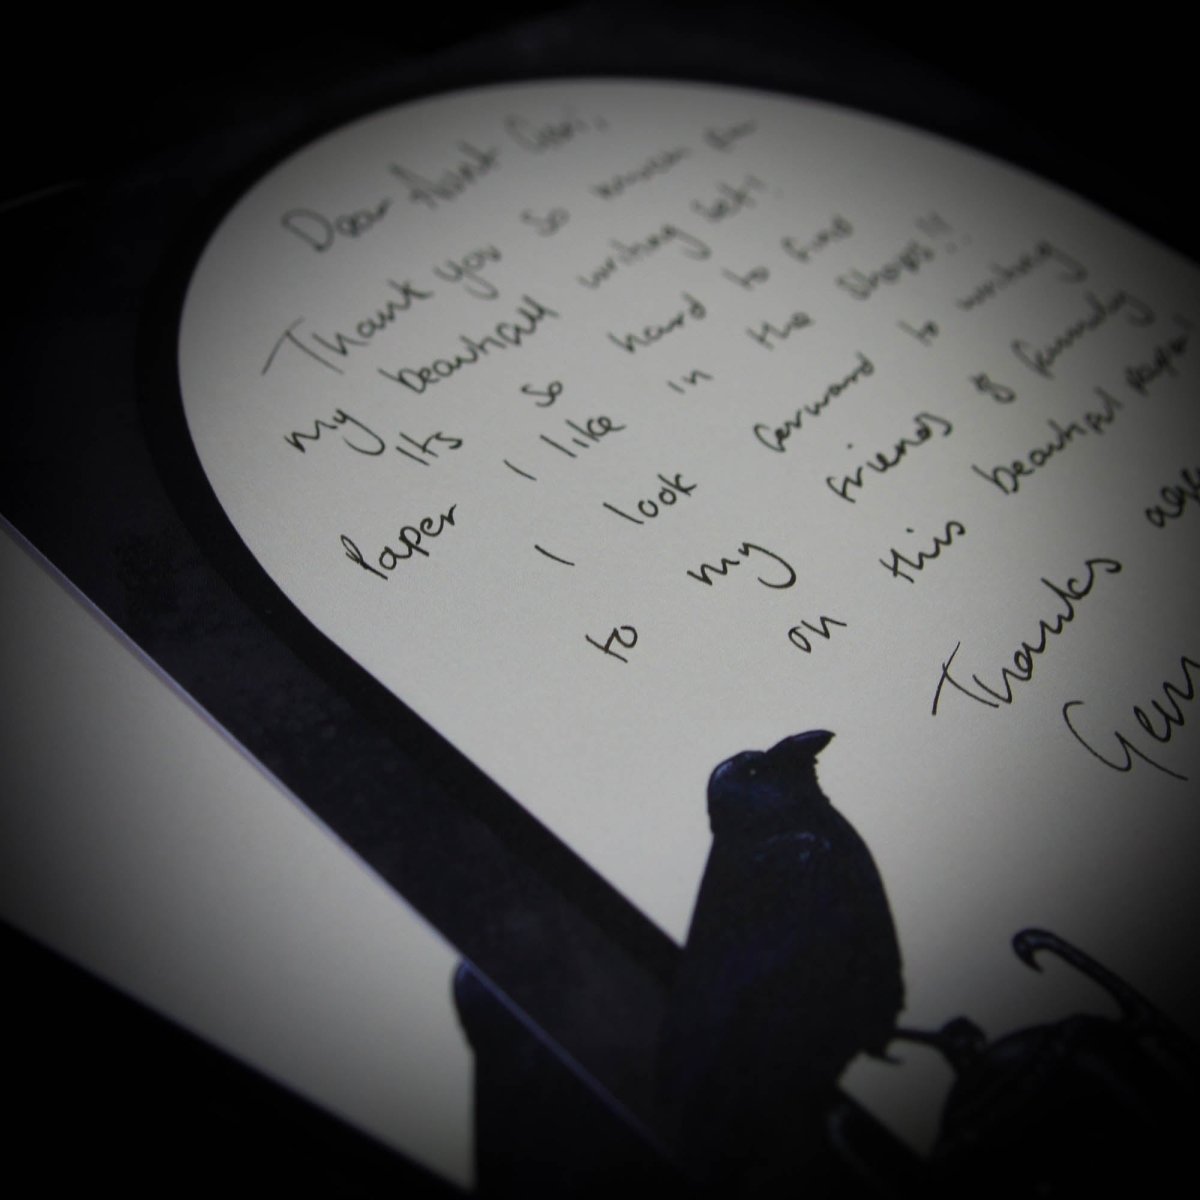 Dear Aunt
Thank you so much for
my beautifull writing set!
Its so hard to find
Paper I like in the shops!!
I look forward to writing
to my friends & family
on this beautiful paper
Thanks